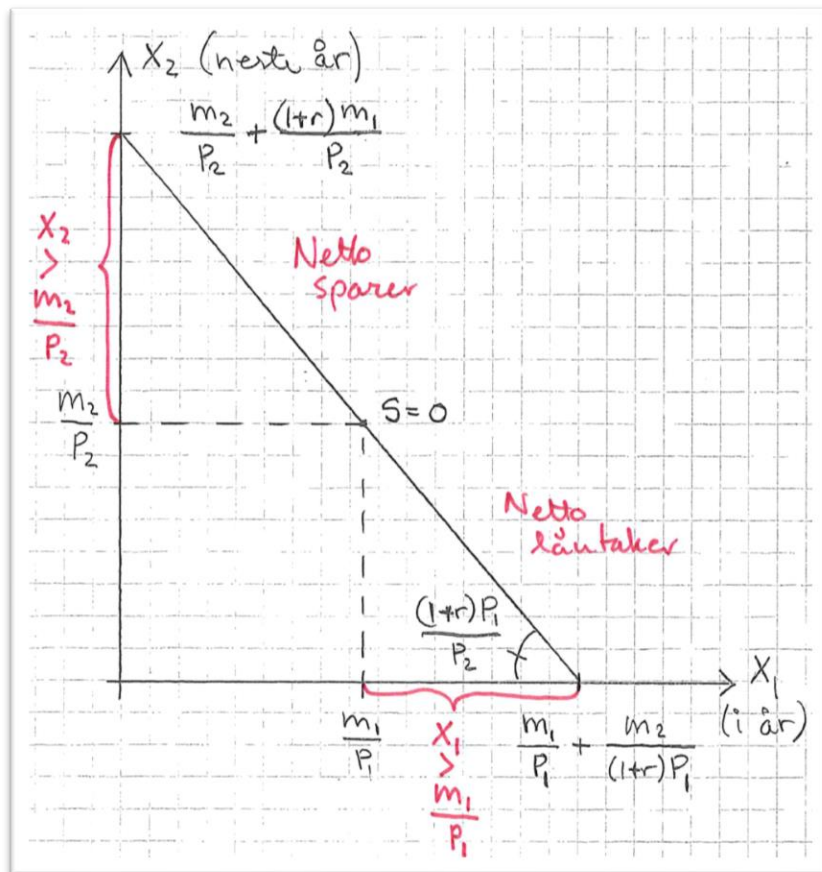 X₂ (neste år)
m₂/P₂ + (1+r)m₁/P₂
X₂ > m₂/P₂
Netto
sparer
m₂/P₂
S=0
Netto
låntaker
(1+r)P₁/P₂
X₁
(i år)
m₁/P₁
X₁ > m₁/P₁
m₁/P₁ + m₂/(1+r)P₁